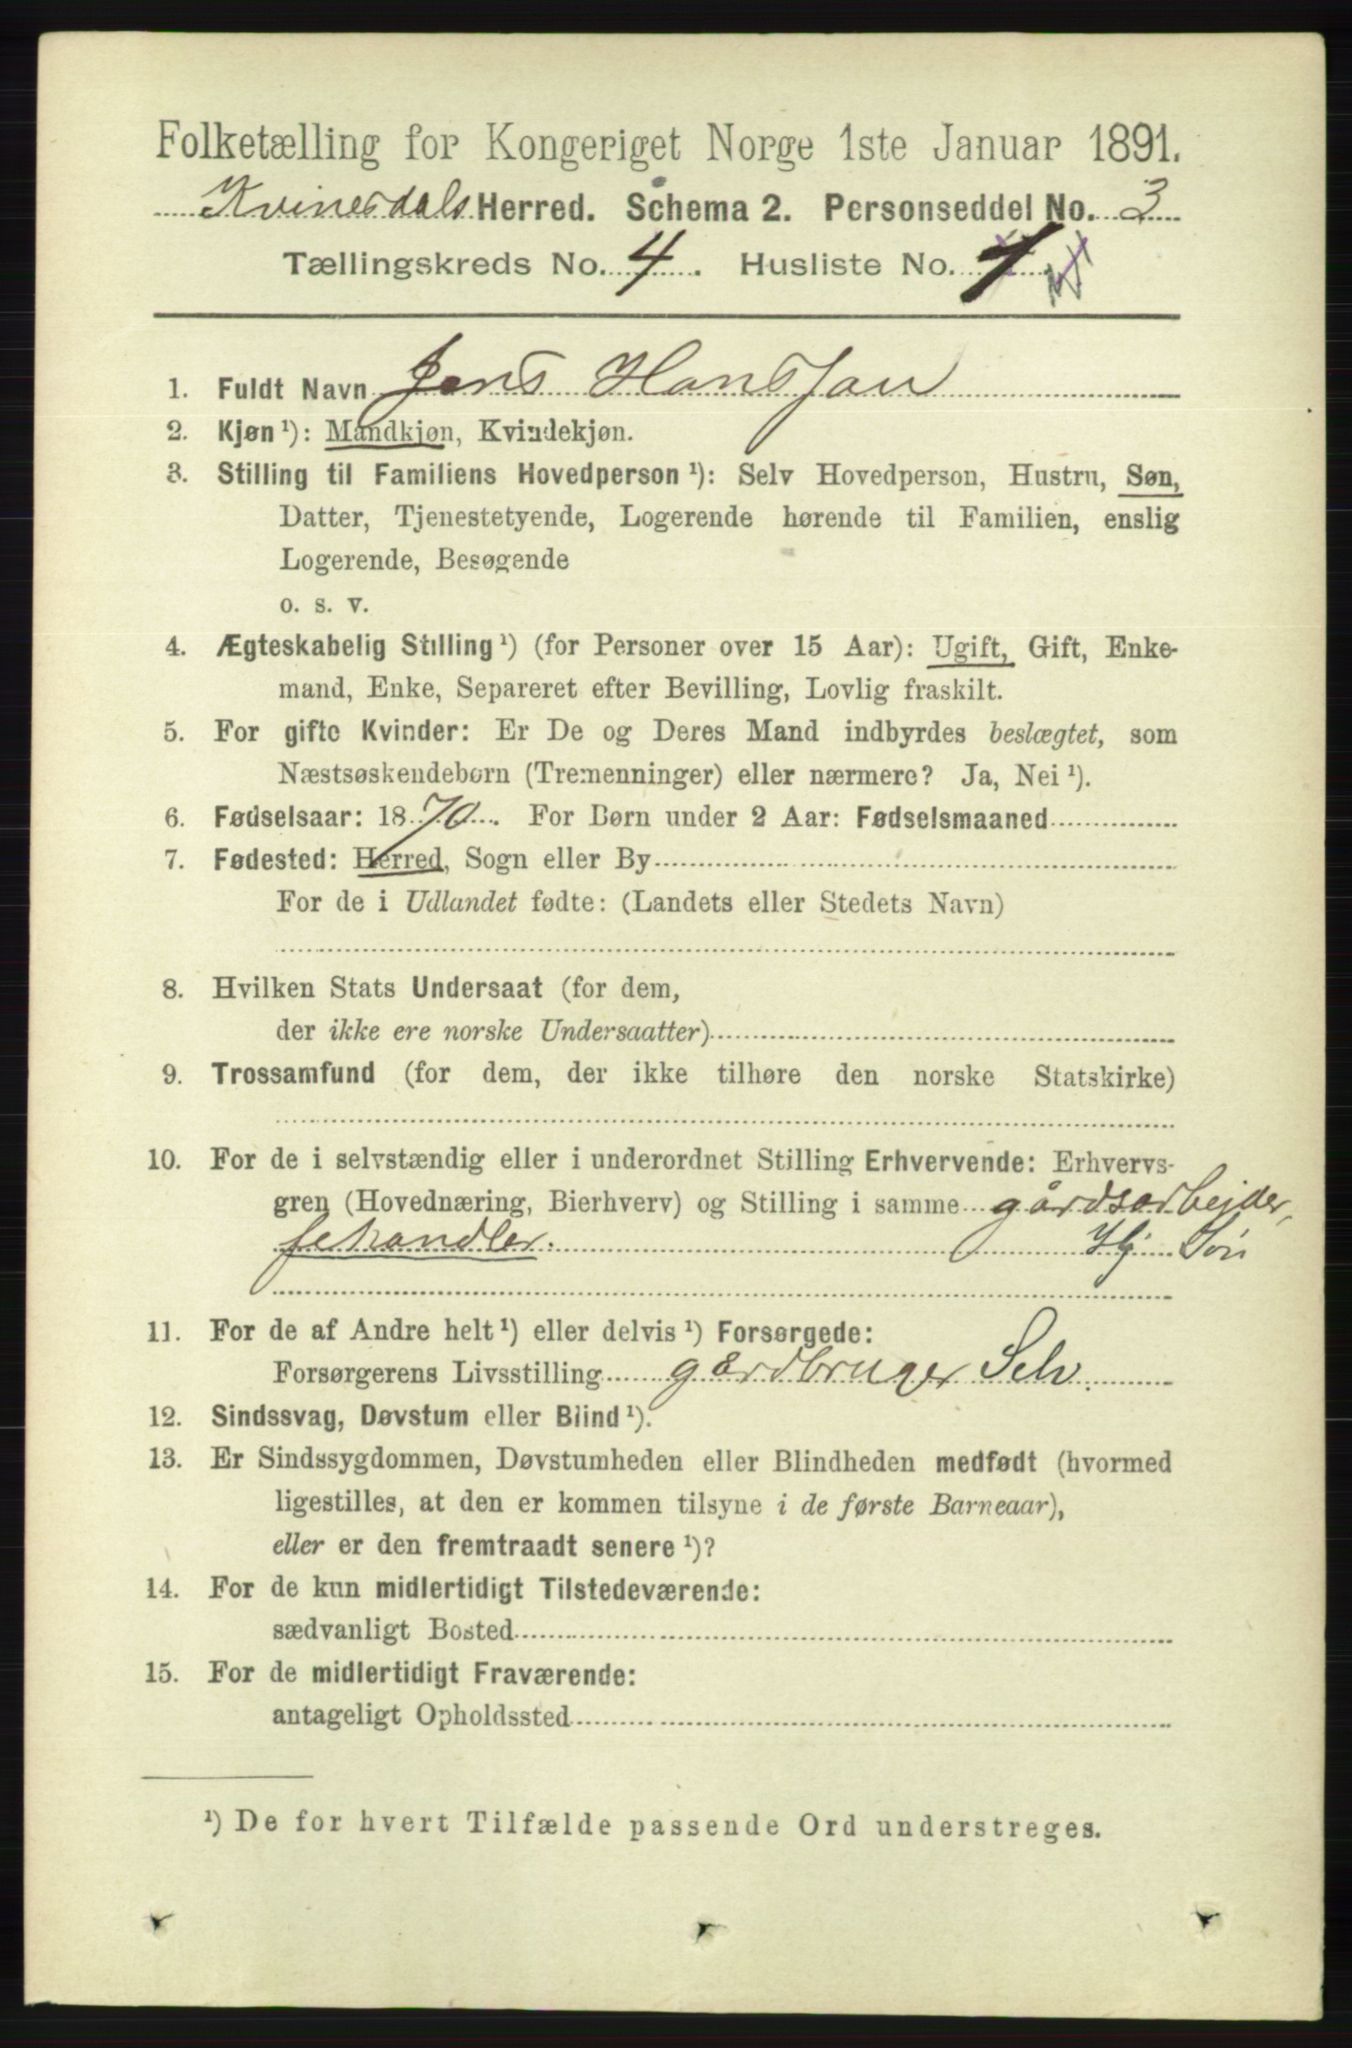 Folketælling for Kongeriget Norge 1ste Januar 1891.
Kvinesdals Herred. Schema 2. Personseddel No. 3
Tællingskreds No. 4. Husliste No. 4
1. Fuldt Navn Jens Hansson
2. Kjøn ¹): Mandkjøn, Kvindekjøn.
3. Stilling til Familiens Hovedperson ¹): Selv Hovedperson, Hustru, Søn,
Datter, Tjenestetyende, Logerende hørende til Familien, enslig
Logerende, Besøgende
o. s. v.
4. Ægteskabelig Stilling ¹) (for Personer over 15 Aar): Ugift, Gift, Enke-
mand, Enke, Separeret efter Bevilling, Lovlig fraskilt.
5. For gifte Kvinder: Er De og Deres Mand indbyrdes beslægtet, som
Næstsøskendebørn (Tremenninger) eller nærmere? Ja, Nei ¹).
6. Fødselsaar: 1870. For Børn under 2 Aar: Fødselsmaaned
7. Fødested: Herred, Sogn eller By
For de i Udlandet fødte: (Landets eller Stedets Navn)
8. Hvilken Stats Undersaat (for dem,
der ikke ere norske Undersaatter)
9. Trossamfund (for dem, der ikke tilhøre den norske Statskirke)
10. For de i selvstændig eller i underordnet Stilling Erhvervende: Erhvervs-
gren (Hovednæring, Bierhverv) og Stilling i samme gårdsarbejder,
fehandler. Hj Søn
11. For de af Andre helt ¹) eller delvis ¹) Forsørgede:
Forsørgerens Livsstilling gårdbruger Selv.
12. Sindssvag, Døvstum eller Blind ¹).
13. Er Sindssygdommen, Døvstumheden eller Blindheden medfødt (hvormed
ligestilles, at den er kommen tilsyne i de første Barneaar),
eller er den fremtraadt senere ¹)?
14. For de kun midlertidigt Tilstedeværende:
sædvanligt Bosted
15. For de midlertidigt Fraværende:
antageligt Opholdssted
¹) De for hvert Tilfælde passende Ord understreges.